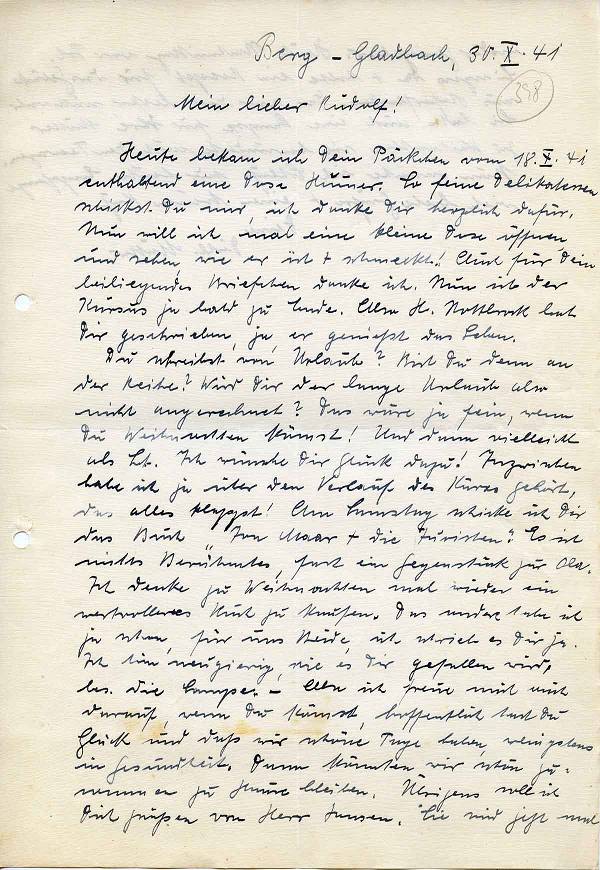 Berg - Gladbach, 30.X.41
398
Mein lieber Rudolf!
Heute bekam ich Dein Päckchen vom 18.X.41
enthaltend eine Dose Hummer. So feine Delikatessen
schickst Du mir, ich danke Dir herzlich dafür.
Nun will ich mal eine kleine Dose öffnen
und sehen, wie er ist + schmeckt! Auch für Dein
beiliegendes Briefchen danke ich. Nun ist der
Kursus ja bald zu Ende. Also H. hat
Dir geschrieben, ja, er genießt das Leben.
Du schreibst von Urlaub? Bist Du denn an
der Reihe? Wird Dir der lange Urlaub also
nicht angerechnet? Das wäre ja fein, wenn
Du Weihnachten kämst! Und dann vielleicht
als Lt. Ich wünsche Dir Glück dazu! Inzwischen
habe ich ja über den Verlauf des Kurses gehört,
das alles klappt! Am Samstag schicke ich Dir
das Buch " Maar + die Juristen". Es ist
nichts Berühmtes, fast ein Gegenstück zur
Ich denke zu Weihnachten mal wieder ein
wertvolleres Stück zu kaufen. Das andere habe ich
ja schon, für uns Beide, ich schrieb es Dir ja.
Ich bin neugierig, wie es Dir gefallen wird,
bes. die Lampe. - Also ich freue mich auch
darauf, wenn Du kämst, hoffentlich hast Du
Glück und daß wir schöne Tage haben, wenigstens
in Gesundheit. Dann könnten wir schön zu-
sammen zu Hause bleiben. Übrigens soll ich
Dich grüßen von Herr Jansen. Sie sind jetzt mal